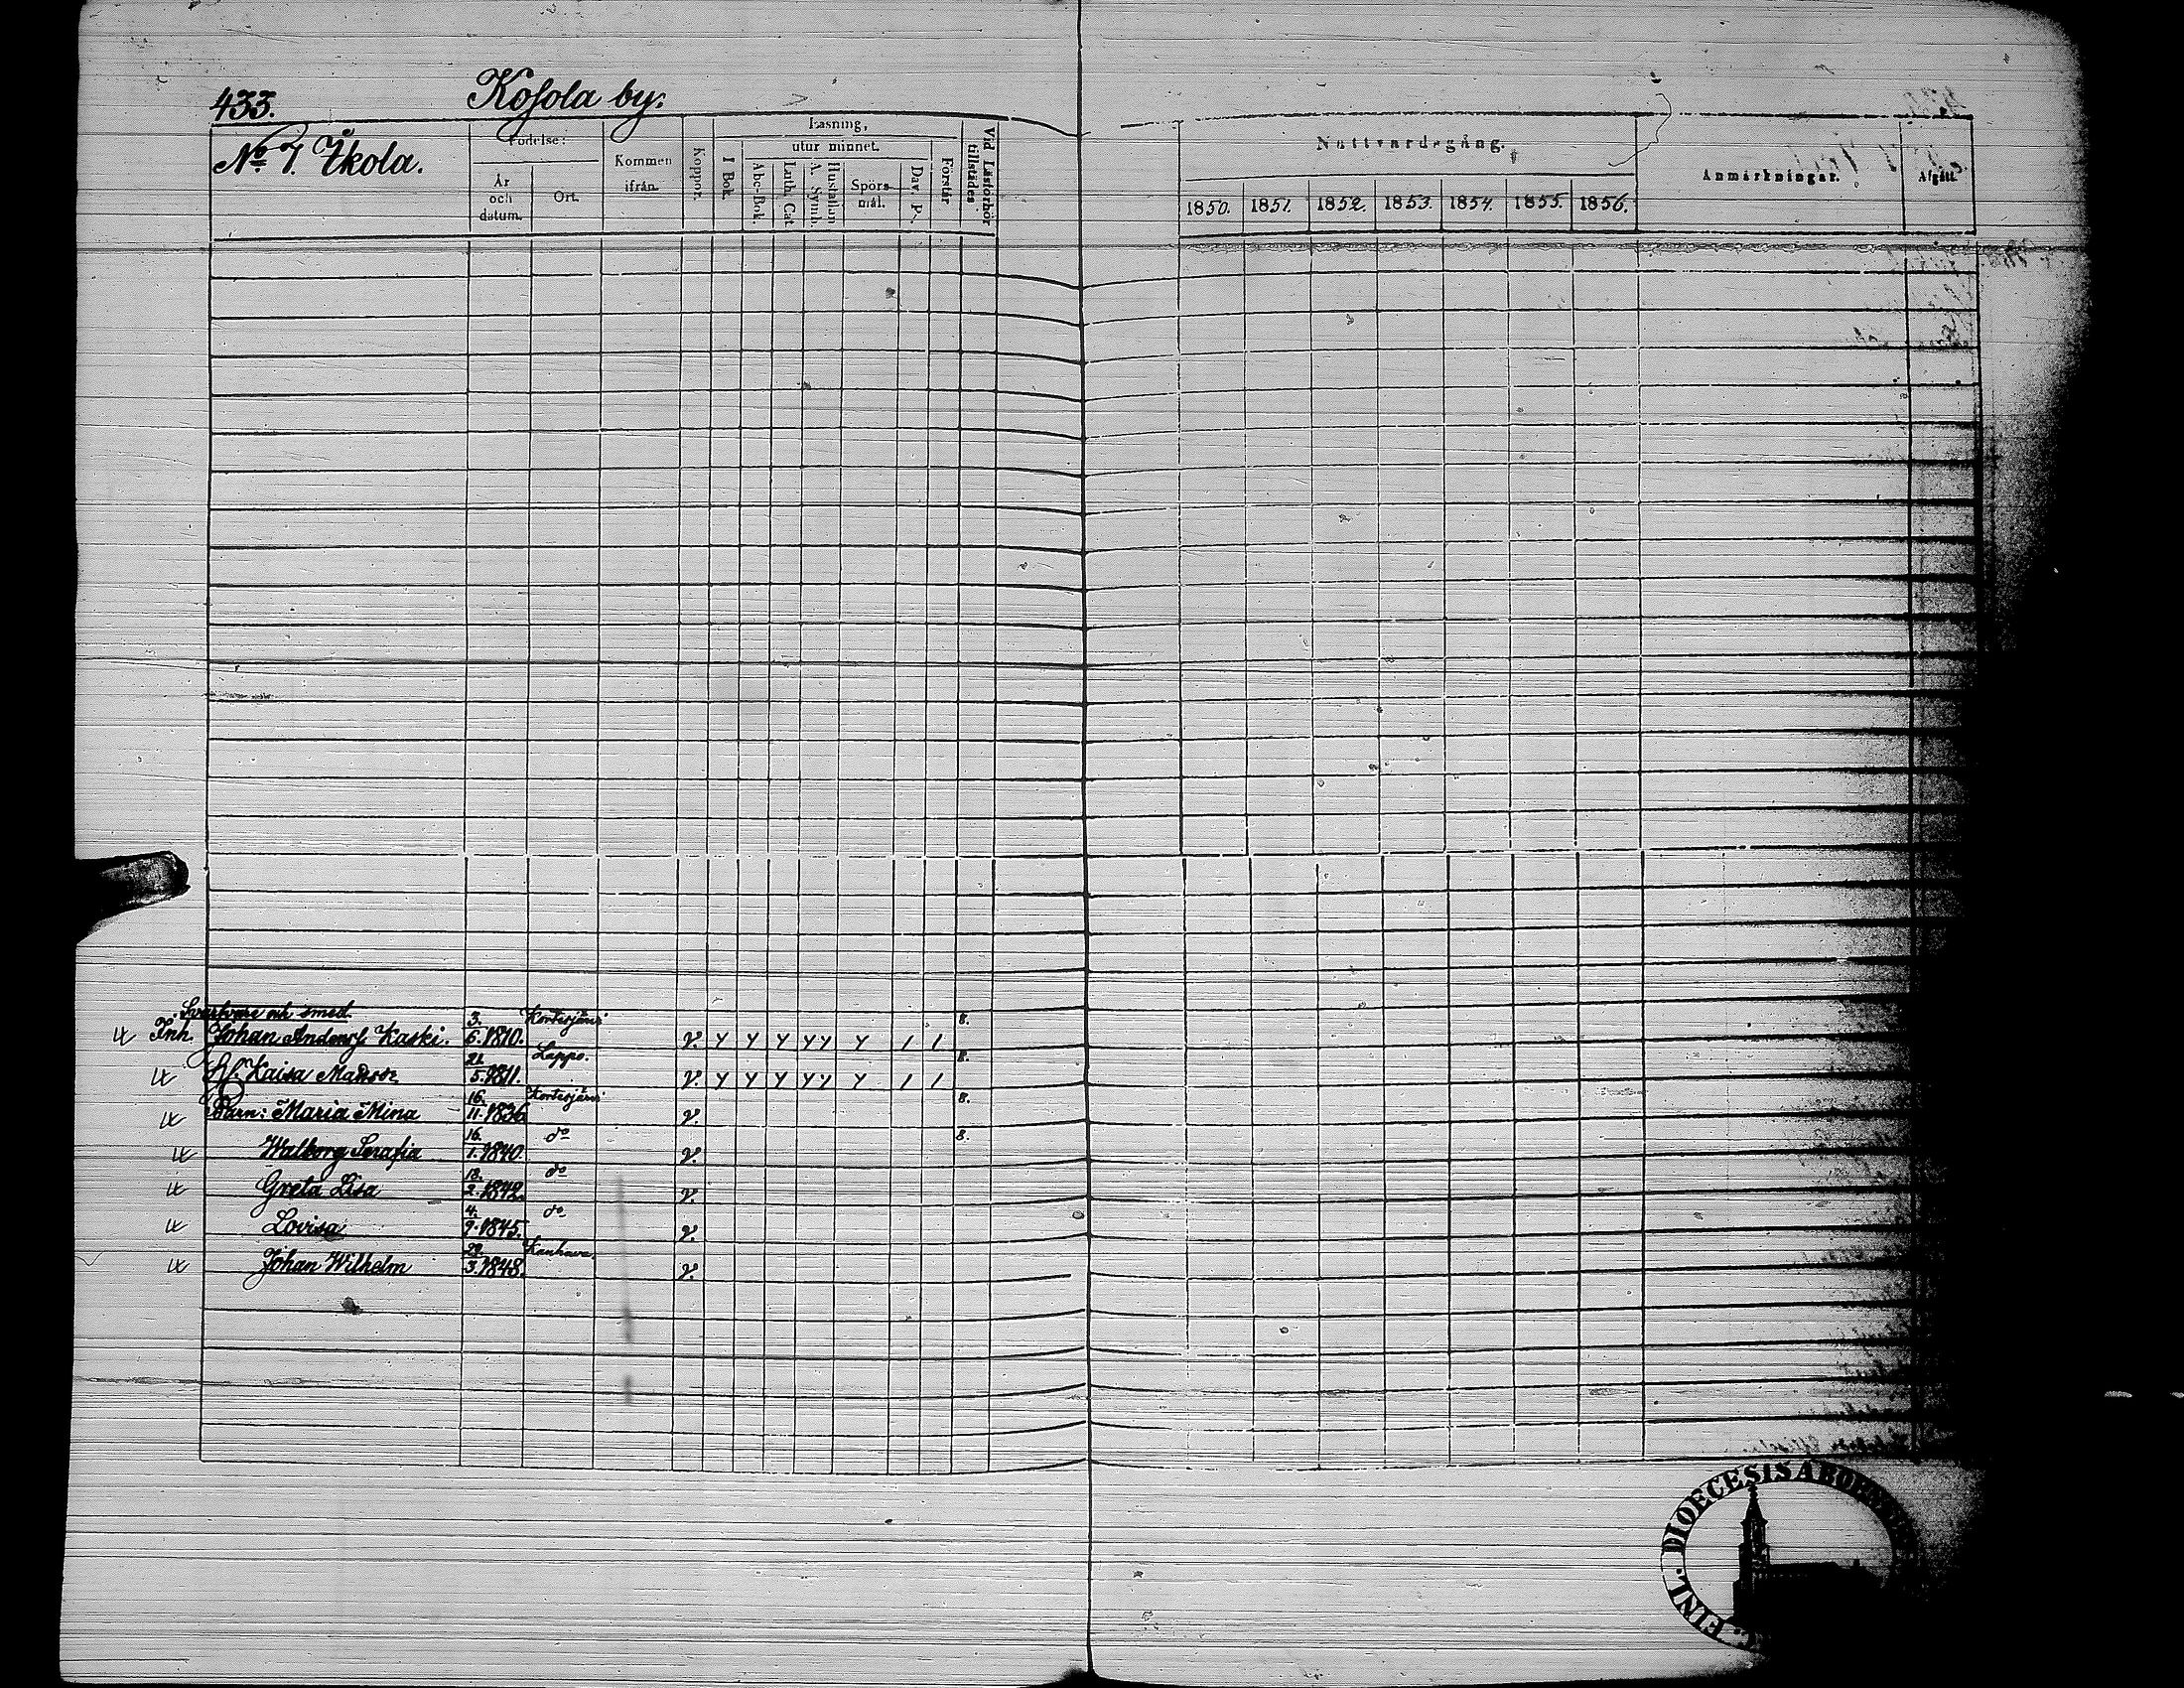 433. Kosola by.
No 7. Ikola.
Födelse:
År och datum.
Ort.
Kommen ifrån.
Koppor.
Läsning,
I Bok.
utur minnet.
Abc-Bok.
Luth. Cat.
Hustaflan A. Symb.
Spörs-mål.
Dav. P.
Förstår
Vid Läsförhör tillstädes
Nattvardsgång.
1850. 1851. 1852. 1853. 1854. 1855. 1856.
Anmärkningar.
Afgått.
och smed.
Inh. Johan Anderss Kaski. 3. 6. 1810. Kortesjärvi v. 8.
H. Kaisa Matsdr. 21. 5. 1811. Lappo. v. 8.
Barn: Maria Mina 16. 11. 1836 Kortesjärvi v. 8.
Walborg Serafia 16. 1. 1840. do v. 8.
Greta Lisa 18. 2. 1842. do v.
Lovisa 4. 9. 1845. do v.
Johan Wilhelm 29. 3. 1848. Kauhava. v.
FINL. DIOECESIS